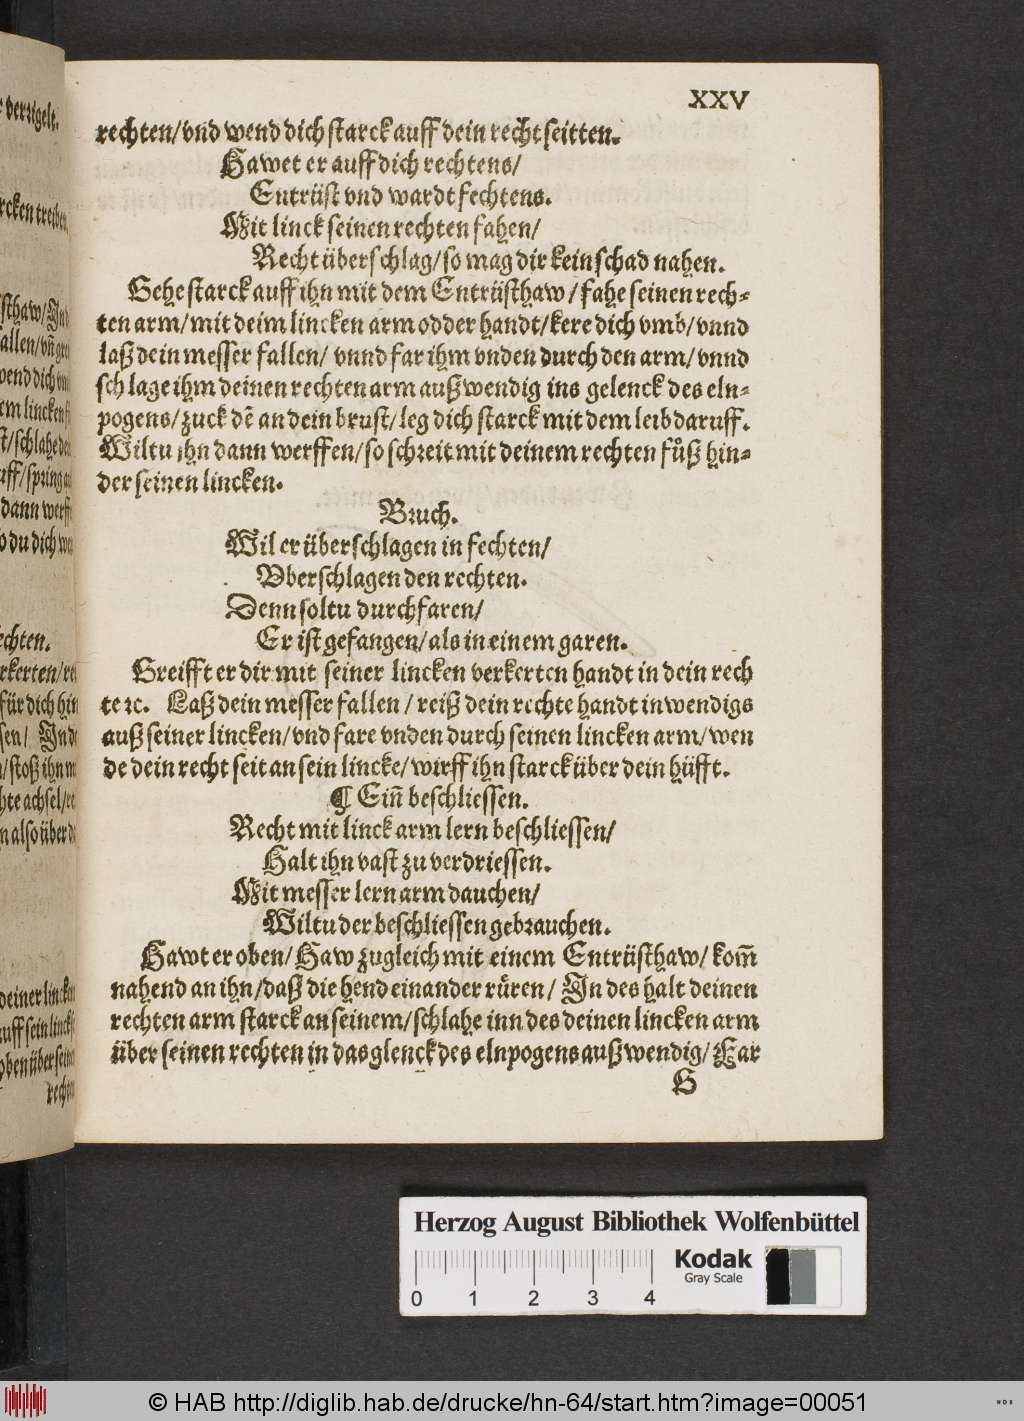 XXV
rechten/vnd wend dich starck auff dein recht seitten.
Hawet er auff dich rechtens/
Entrüst vnd wardt fechtens.
Mit linck seinen rechten fahen/
Recht überschlag/so mag dir kein schad nahen.
Gehe starck auff ihn mit dem Entrüsthaw/fahe seinen rech=
ten arm/mit deim lincken arm odder handt/kere dich vmb/vnnd
laß dein messer fallen/ vnnd far ihm vnden durch den arm/vnnd
schlage ihm deinen rechten arm außwendig ins gelenck des eln=
pogens/zuck dē an dein brust/leg dich starck mit dem leib daruff.
Wiltu ihn dann werffen/so schreit mit deinem rechten fůß hin=
der seinen lincken.
Bruch.
Wil er überschlagen in fechten/
Vberschlagen den rechten.
Denn soltu durchfaren/
Er ist gefangen/als in einem garen.
Greifft er dir mit seiner lincken verkerten handt in dein rech
te ꝛc. Laß dein messer fallen/ reiß dein rechte handt inwendigs
auß seiner lincken/vnd fare vnden durch seinen lincken arm/wen
de dein recht seit an sein lincke/wirff ihn starck über dein hüfft.
¶ Ein̄ beschliessen.
Recht mit linck arm lern beschliessen/
Halt ihn vast zu verdriessen.
Mit messer lern arm dauchen/
Wiltu der beschliessen gebrauchen.
Hawt er oben/Haw zugleich mit einem Entrüsthaw/kom̄
nahend an ihn/daß die hend einander rüren/ In des halt deinen
rechten arm starck an seinem/schlahe inn des deinen lincken arm
über seinen rechten in das glenck des elnpogens außwendig/Far
G
Herzog August Bibliothek Wolfenbüttel
Kodak
Gray Scale
0 1 2 3 4
© HAB http://diglib.hab.de/drucke/hn-64/start.htm?image=00051